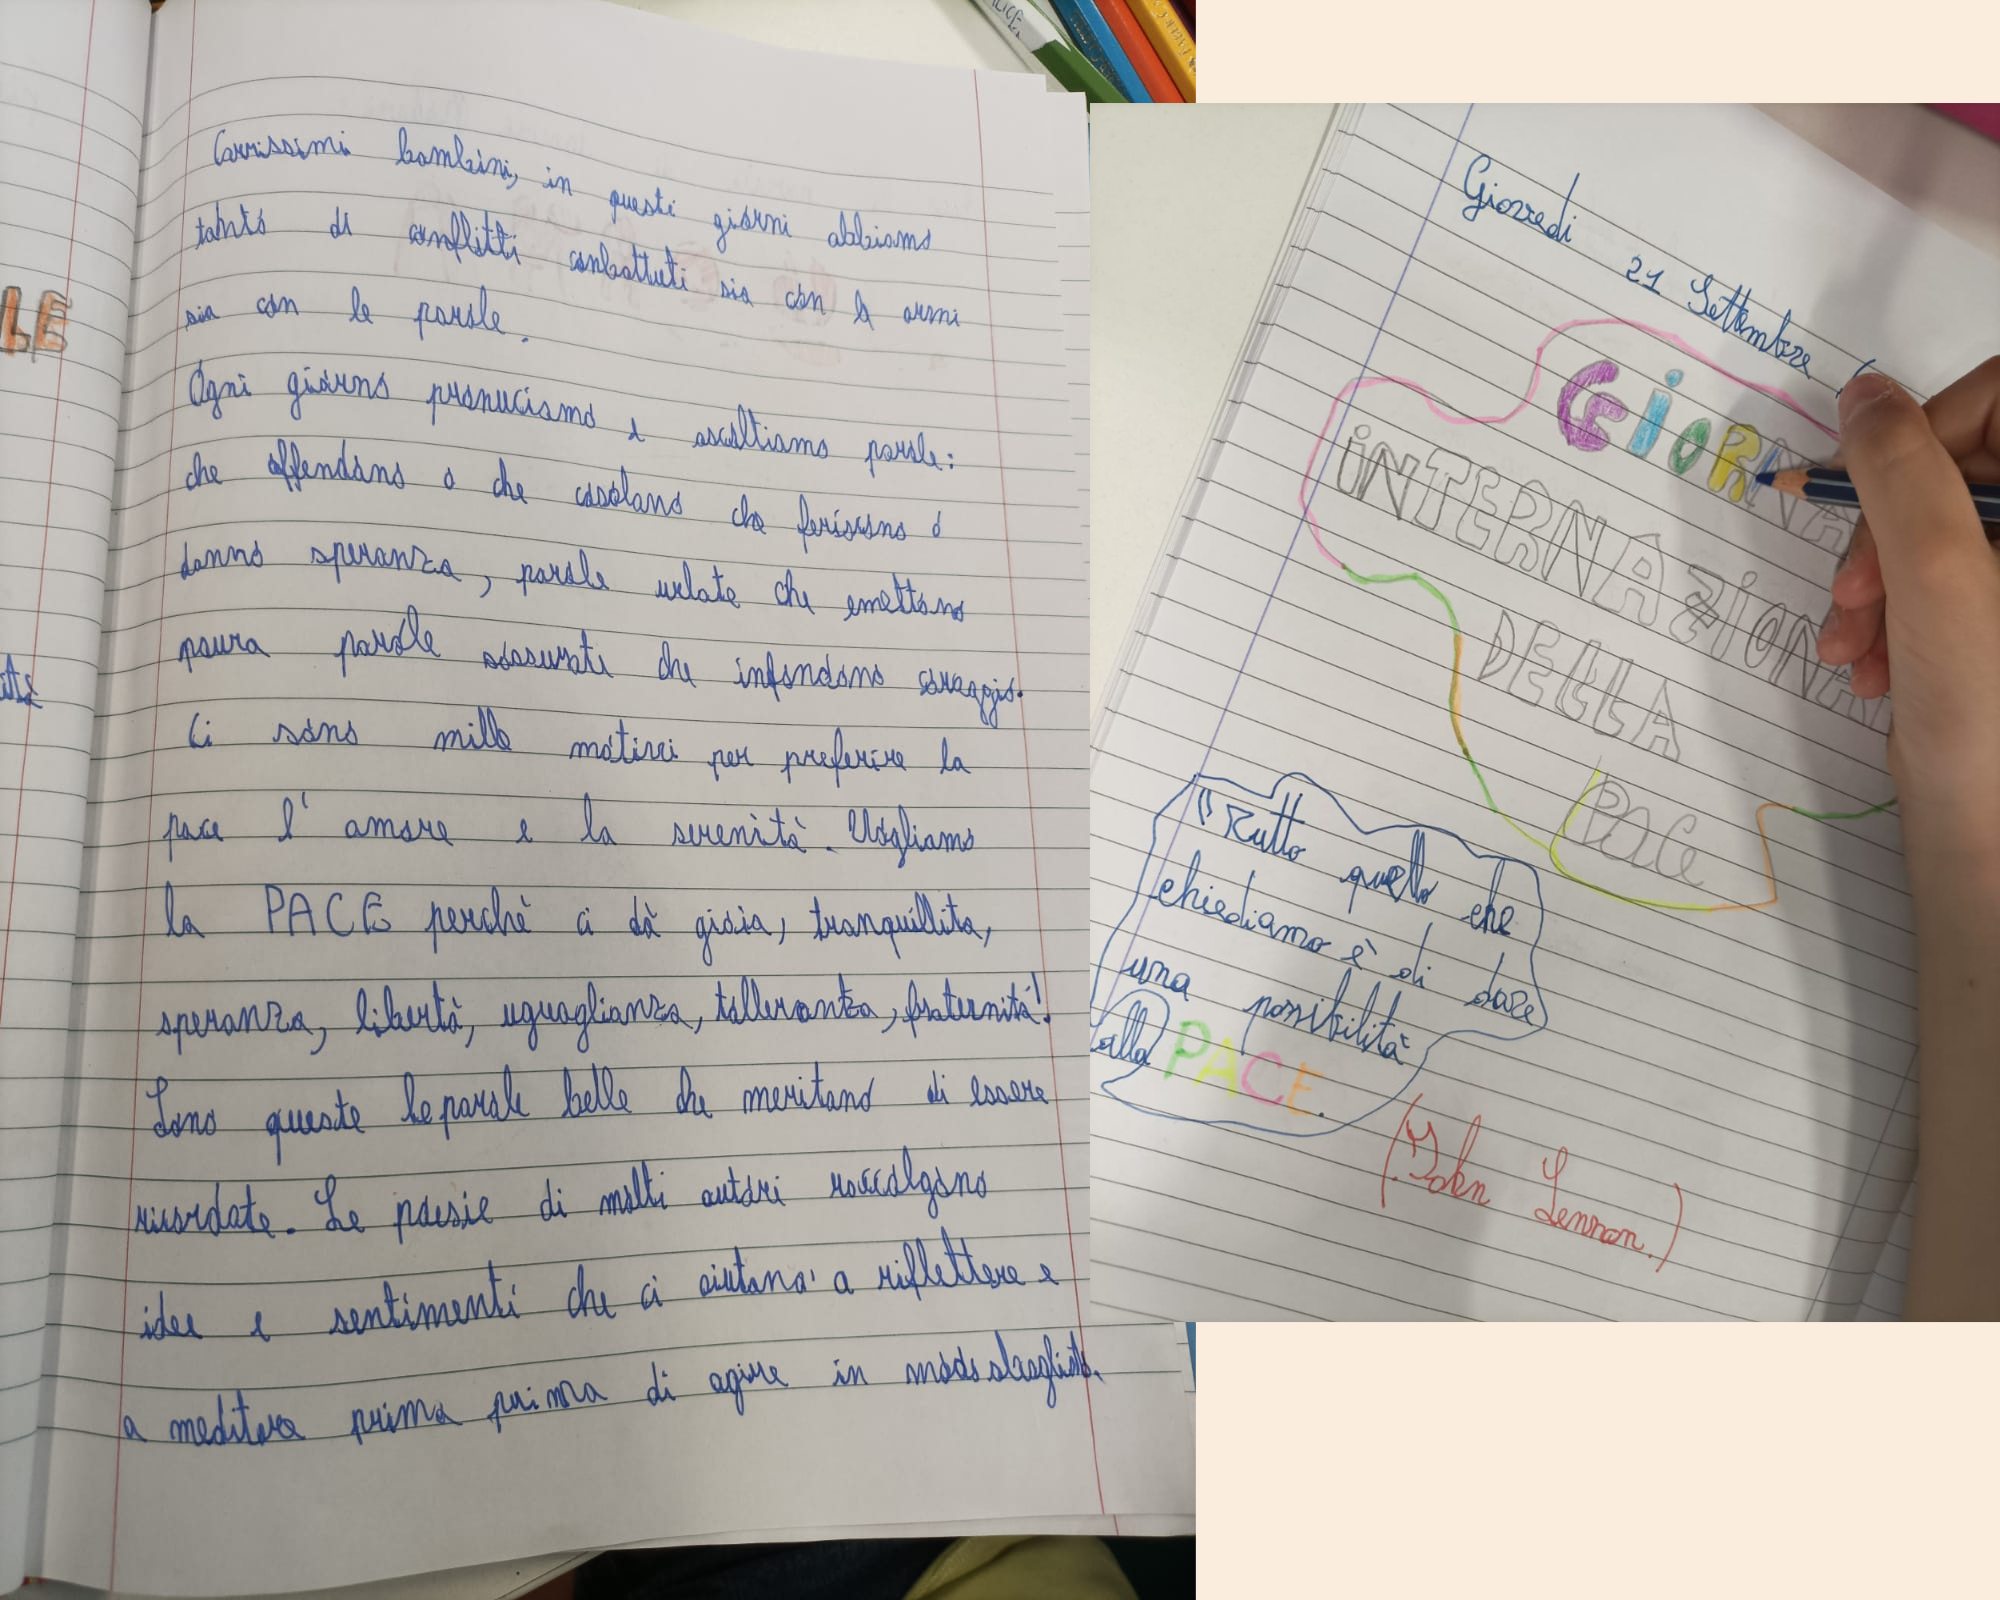 Carrissimi bambini, in questi giorni abbiamo
tanto di conflitti conbattuti sia con le armi
sia con le parole.
Ogni giorno pronuciamo e ascoltiamo parole:
che offendono o che cosolano che feriscono o
danno speranza, parole urlate che emettono
paura parole sossurate che infondono coraggio.
Ci sono mille motivi per preferire la
pace l'amore e la serenità. Vogliamo
la PACE perchè ci dà gioia, tranquillita,
speranza, libertà, uguaglianza, tolleranza, fraternità!
Sono queste le parole belle che meritano di essere
ricordate. Le poesie di molti autori raccolgono
idee e sentimenti che ci aiutano a riflettere e
a meditare prima prima di agire in modo sbagliato.
LE
Giovedì
21 Settembre
GIORNA
INTERNAZIONA
DELLA
PACE
"Tutto quello che
chiediamo è di dare
una possibilità
alla PACE.
(John Lennon.)